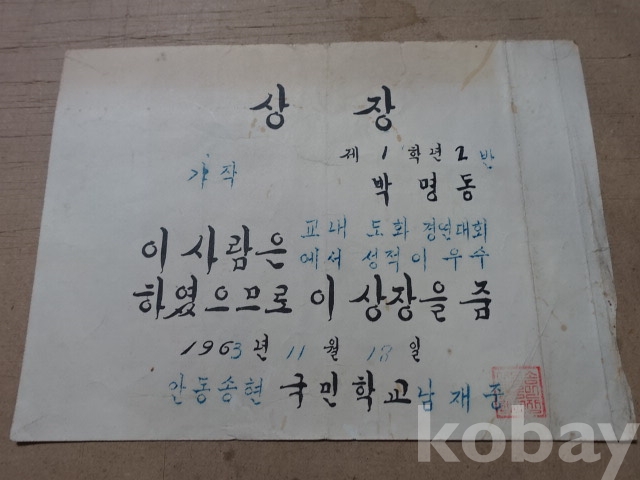 상 장
제 1 학년 2 반
가작
박명동
이 사람은 교내 도화 경연대회
에서 성적이 우수
하였으므로 이 상장을 줌
1963년 11월 18일
안동송현 국민학교 남재준
kobay